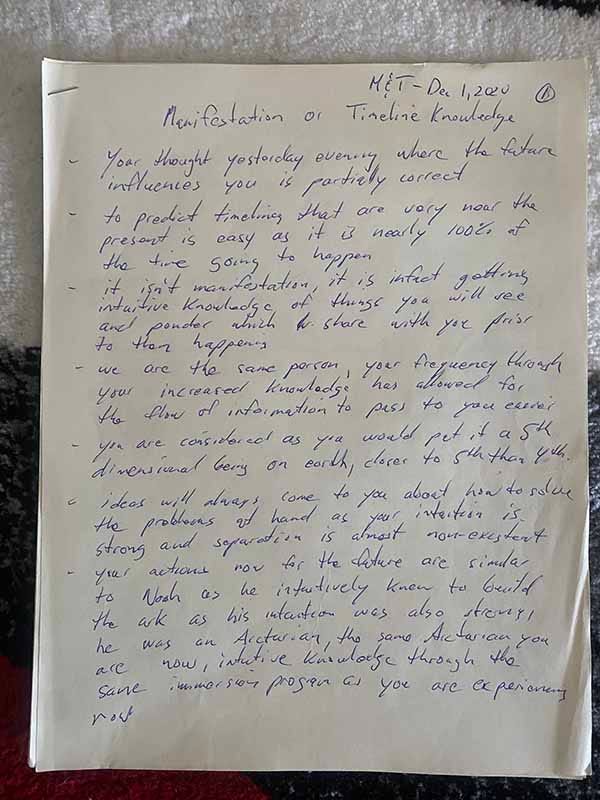 M&T - Dec 1, 2020 ①
Manifestation or Timeline Knowledge
- Your thought yesterday evening where the future
influences you is partially correct
- to predict timelines that are very near the
present is easy as it is nearly 100% of
the time going to happen
- it isn't manifestation, it is infact getting
intuitive knowledge of things you will see
and ponder which share with you prior
to them happening
- we are the same person, your frequency through
your increased knowledge has allowed for
the flow of information to pass to you easier
- you are considered as you would put it a 5th
dimensional being on earth, closer to 5th than 4th.
- ideas will always come to you about how to solve
the problems at hand as your intuition is
strong and separation is almost non-existent
- your actions now for the future are similar
to Noah as he intuitively knew to build
the ark as his intuition was also strong,
he was an Arcturian, the same Arcturian you
are now, intuitive knowledge through the
same immersion program as you are experiencing
now